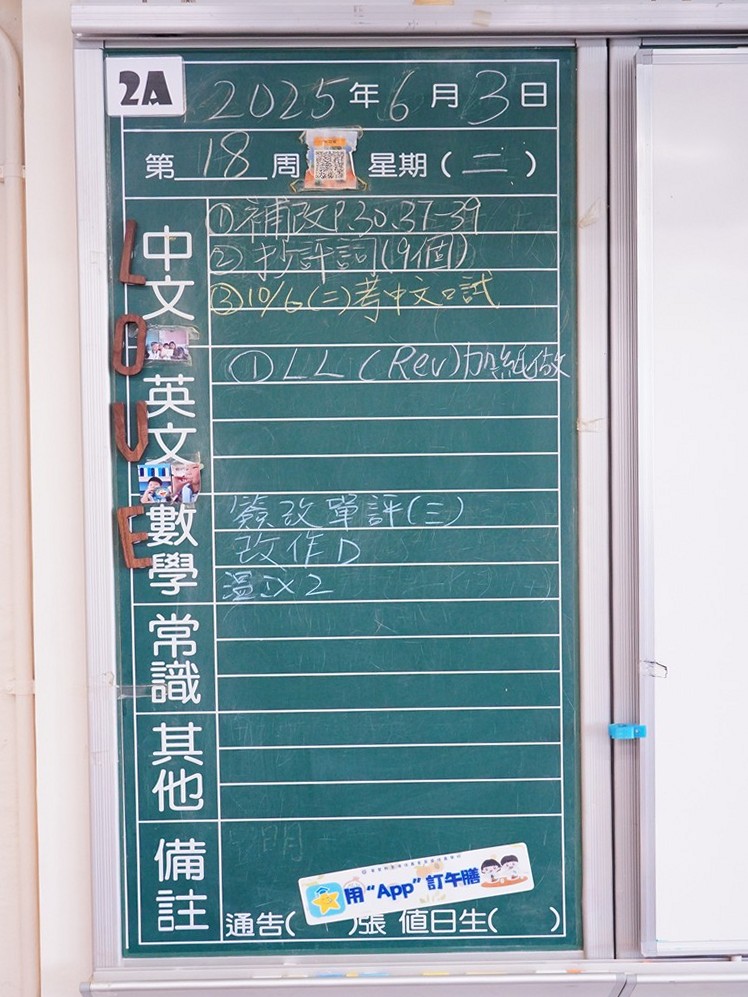 2A
2025年6月3日
第18周 星期(二)
L
O
V
E
中文
①補改P.30.37-39
②抄評詞(9個)
③10/6(二)考中文口試
英文
①LL (Rev)加紙做
數學
簽改單評(三)
改作D
溫IX2
常識
其他
備註
用“App”訂午膳
通告( )張 值日生( )